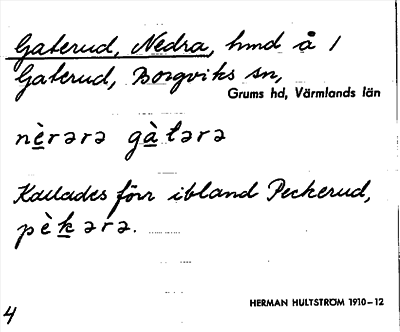 Gaterud, Nedra, hmd å 1
Gaterud, Borgviks sn,
Grums hd, Värmlands län
nèrərə gàtərə
Kallades förr ibland Peckerud,
pèkərə.
HERMAN HULTSTRÖM 1910–12
4